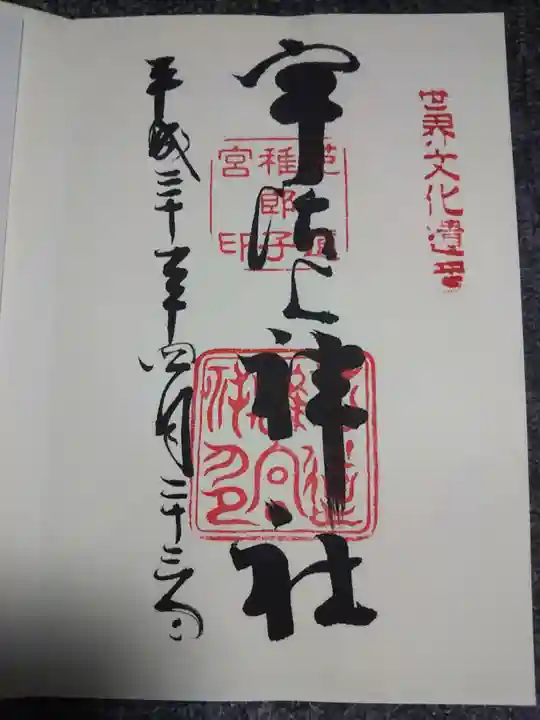 世界文化遺産
宇治上神社
菟道
稚郎子
宮印
平成三十年四月二十三日